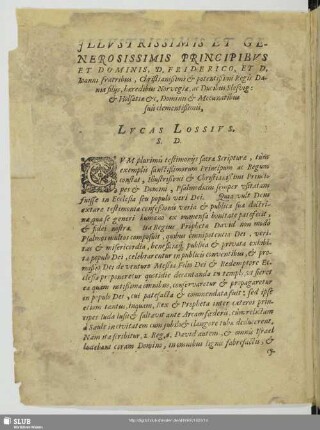 ILLVSTRISSIMIS ET GE-
NEROSISSIMIS PRINCIPIBVS
ET DOMINIS, D. FRIDERICO, ET D.
Ioanni fratribus, Christianissimi & potentissimi Regis Da-
niæ filijs, hæredibus Noruegiæ, ac Ducibus Slesuig:
& Holsatiæ &c, Dominis & Mecœnatibus
suis clementissimis,
LVCAS LOSSIVS.
S. D.
QVM plurimis testimonijs sacra Scriptura, tum
exemplis sanctissimorum Principum ac Regum
constat, Illustrissimi & Christianissimi Princi-
pes & Domini, Psalmodiam semper vsitatam
fuisse in Ecclesia seu populo veri Dei.
extare testimonia confessionis veræ & publicæ suæ doctri-
næ, qua se generi humano ex immensa bonitate patefecit,
& fidei nostræ Ita Regius Propheta Dauid non modo
Psalmos multos composuit, quibus omnipotentia Dei, veri-
tas & misericordia, beneficia publica & priuata exhibi-
ta populo Dei, celebrarentur in publicis conuentibus, & pro-
missio Dei de venturo Messia Filio Dei & Redemptore Ec-
clesiæ proponeretur quotidie decantanda in templo, vt seri
ea quam notissima omnibus, conseruaretur & propagaretur
in populo Dei, cui patefacta & commendata fuit, sed ipse
etiam cantus, inquam, Rex & Propheta inter cæteros princi-
pes Iuda lusit & saltauit ante Arcam fœderis, cum relictam
à Saule in ciuitatem cum iubilo & clangore tubæ deducerent,
Nam ita scribitur, 2. Reg, 6. Dauid autem, & omnis Israel
ludebant coram Domino, in omnibus lignis fabrefactis, &
SLUB